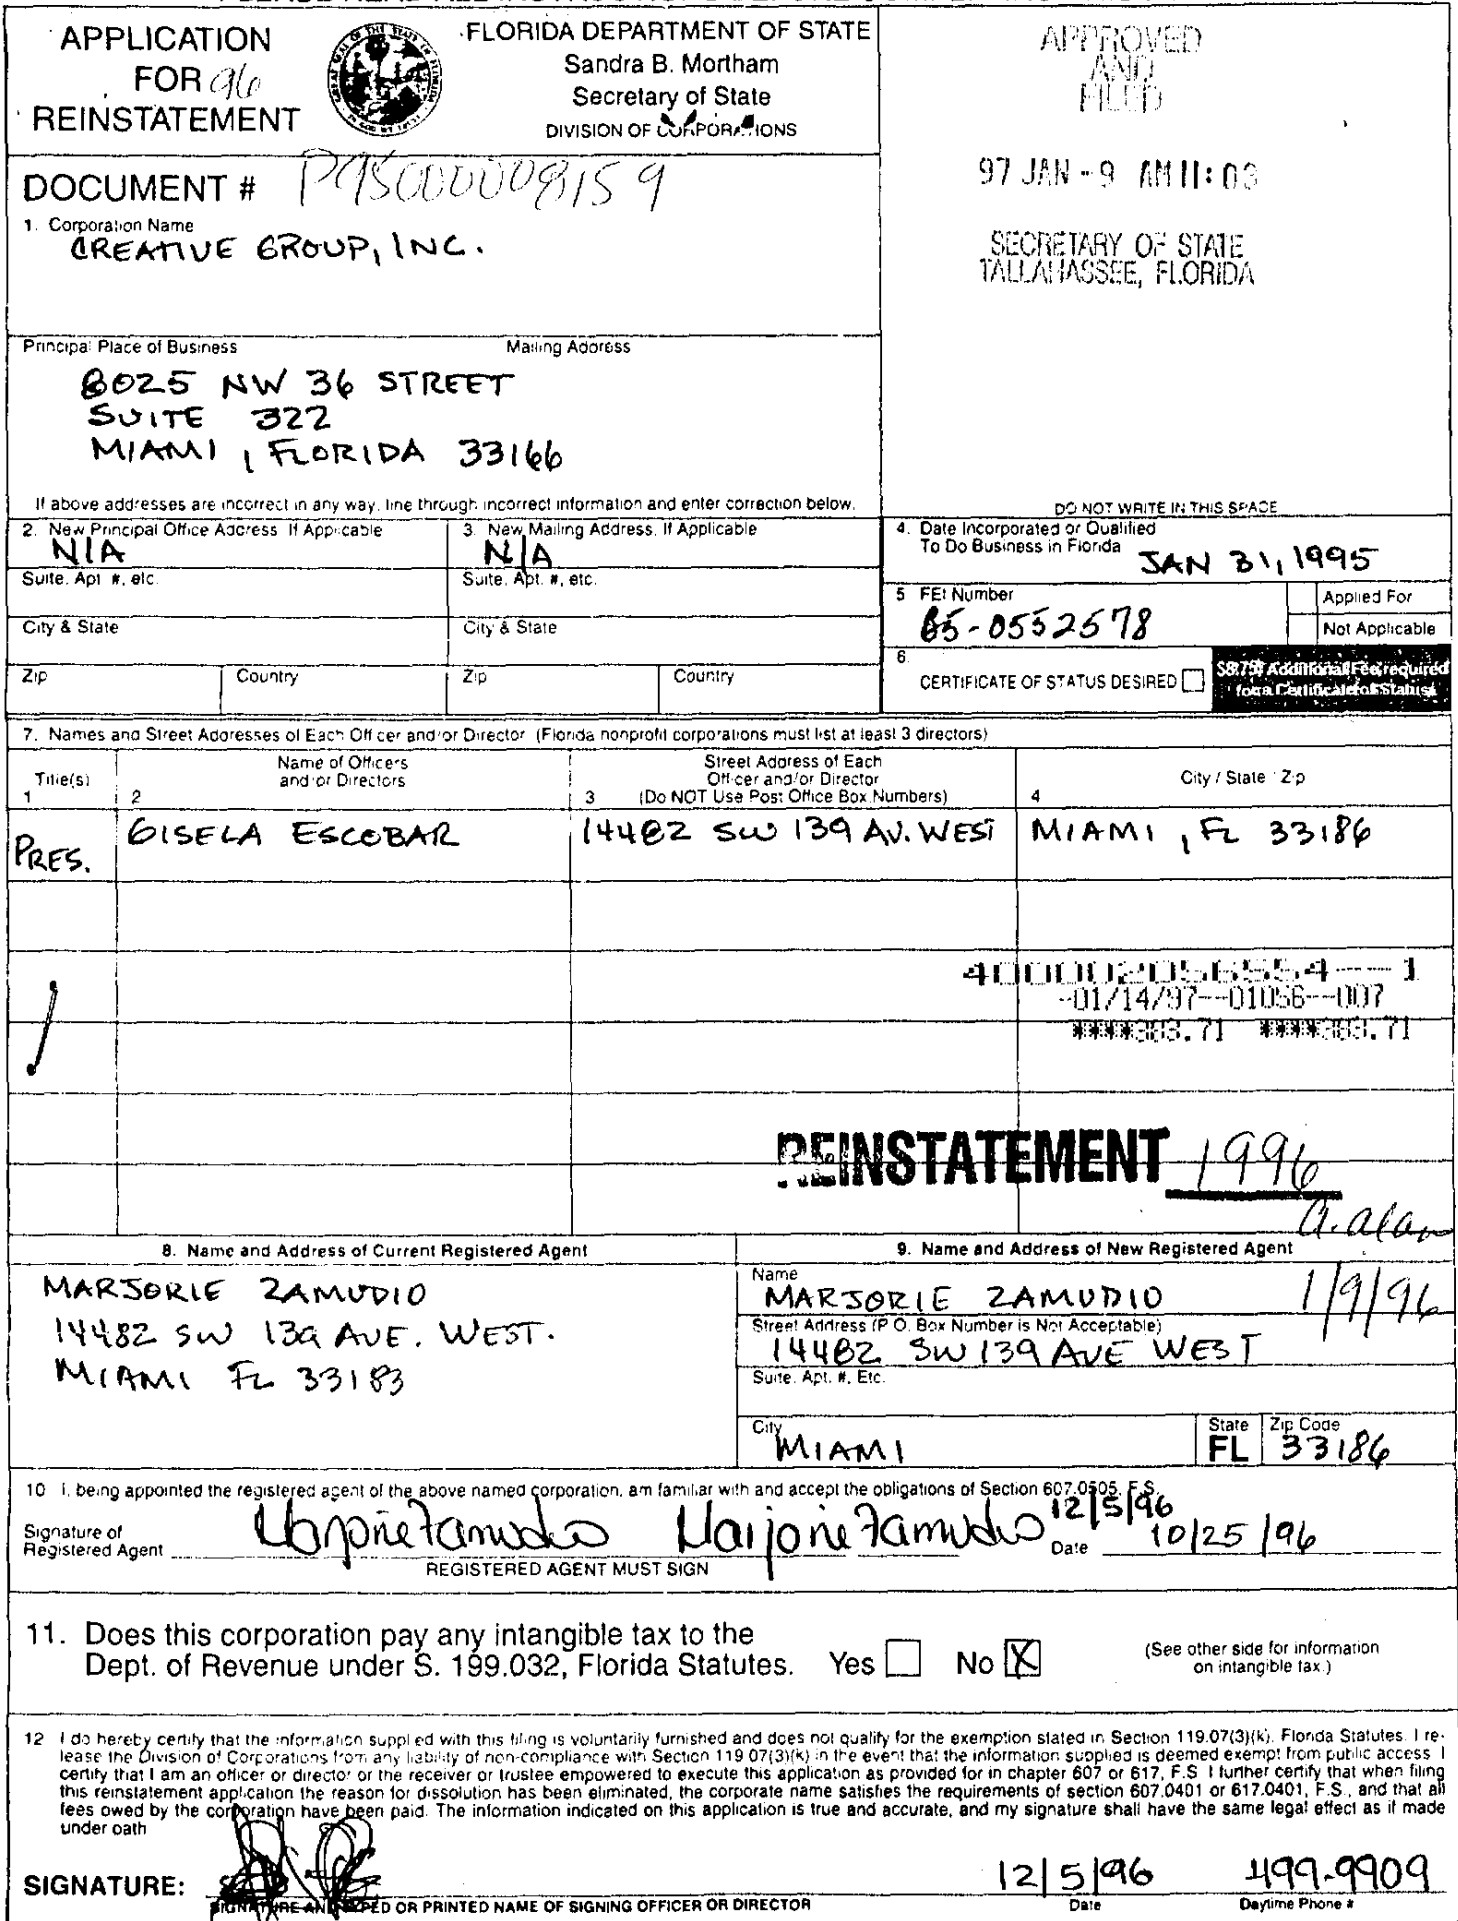 APPLICATION
FOR 96
REINSTATEMENT
FLORIDA DEPARTMENT OF STATE
Sandra B. Mortham
Secretary of State
DIVISION OF CORPORATIONS
APPROVED
AND
FILED
97 JAN -9 AM 11:03
SECRETARY OF STATE
TALLAHASSEE, FLORIDA
DOCUMENT # P95000008159
1. Corporation Name
CREATIVE GROUP, INC.
Principal Place of Business Mailing Address
8025 NW 36 STREET
SUITE 322
MIAMI, FLORIDA 33166
If above addresses are incorrect in any way, line through incorrect information and enter correction below.
DO NOT WRITE IN THIS SPACE
2. New Principal Office Address, If Applicable
N/A
3. New Mailing Address, If Applicable
N/A
4. Date Incorporated or Qualified
To Do Business in Florida
JAN 31, 1995
Suite, Apt. #, etc. Suite, Apt. #, etc.
5 FEI Number
65-0552578
Applied For
Not Applicable
City & State City & State
6.
CERTIFICATE OF STATUS DESIRED
$8.75 Additional Fee required
for a Certificate of Status
Zip Country Zip Country
7. Names and Street Addresses of Each Officer and/or Director (Florida nonprofit corporations must list at least 3 directors)
Title(s)
1
Name of Officers
and/or Directors
2
Street Address of Each
Officer and/or Director
3 (Do NOT Use Post Office Box Numbers)
City / State / Zip
4
PRES. GISELA ESCOBAR 14482 SW 139 AV. WEST MIAMI, FL 33186
400002056554---1
-01/14/97--01056--007
****383.71 ****383.71
REINSTATEMENT 1996
1/9/96
8. Name and Address of Current Registered Agent
MARJORIE ZAMUDIO
14482 SW 139 AVE. WEST.
MIAMI FL 33183
9. Name and Address of New Registered Agent
Name
MARJORIE ZAMUDIO
Street Address (P.O. Box Number is Not Acceptable)
14482 SW 139 AVE WEST
Suite, Apt. #, Etc.
City
MIAMI
State
FL
Zip Code
33186
10 I, being appointed the registered agent of the above named corporation, am familiar with and accept the obligations of Section 607.0505, F.S.
Signature of
Registered Agent Marjorie Zamudio Marjorie Zamudio
12/5/96
Date 10/25/96
REGISTERED AGENT MUST SIGN
11. Does this corporation pay any intangible tax to the
Dept. of Revenue under S. 199.032, Florida Statutes. Yes No X
(See other side for information
on intangible tax.)
12 I do hereby certify that the information supplied with this filing is voluntarily furnished and does not qualify for the exemption stated in Section 119.07(3)(k), Florida Statutes. I re-
lease the Division of Corporations from any liability of non-compliance with Section 119.07(3)(k) in the event that the information supplied is deemed exempt from public access. I
certify that I am an officer or director or the receiver or trustee empowered to execute this application as provided for in chapter 607 or 617, F.S. I further certify that when filing
this reinstatement application the reason for dissolution has been eliminated, the corporate name satisfies the requirements of section 607.0401 or 617.0401, F.S., and that all
fees owed by the corporation have been paid. The information indicated on this application is true and accurate, and my signature shall have the same legal effect as if made
under oath
SIGNATURE: 12/5/96 499-9909
SIGNATURE AND TYPED OR PRINTED NAME OF SIGNING OFFICER OR DIRECTOR Date Daytime Phone #